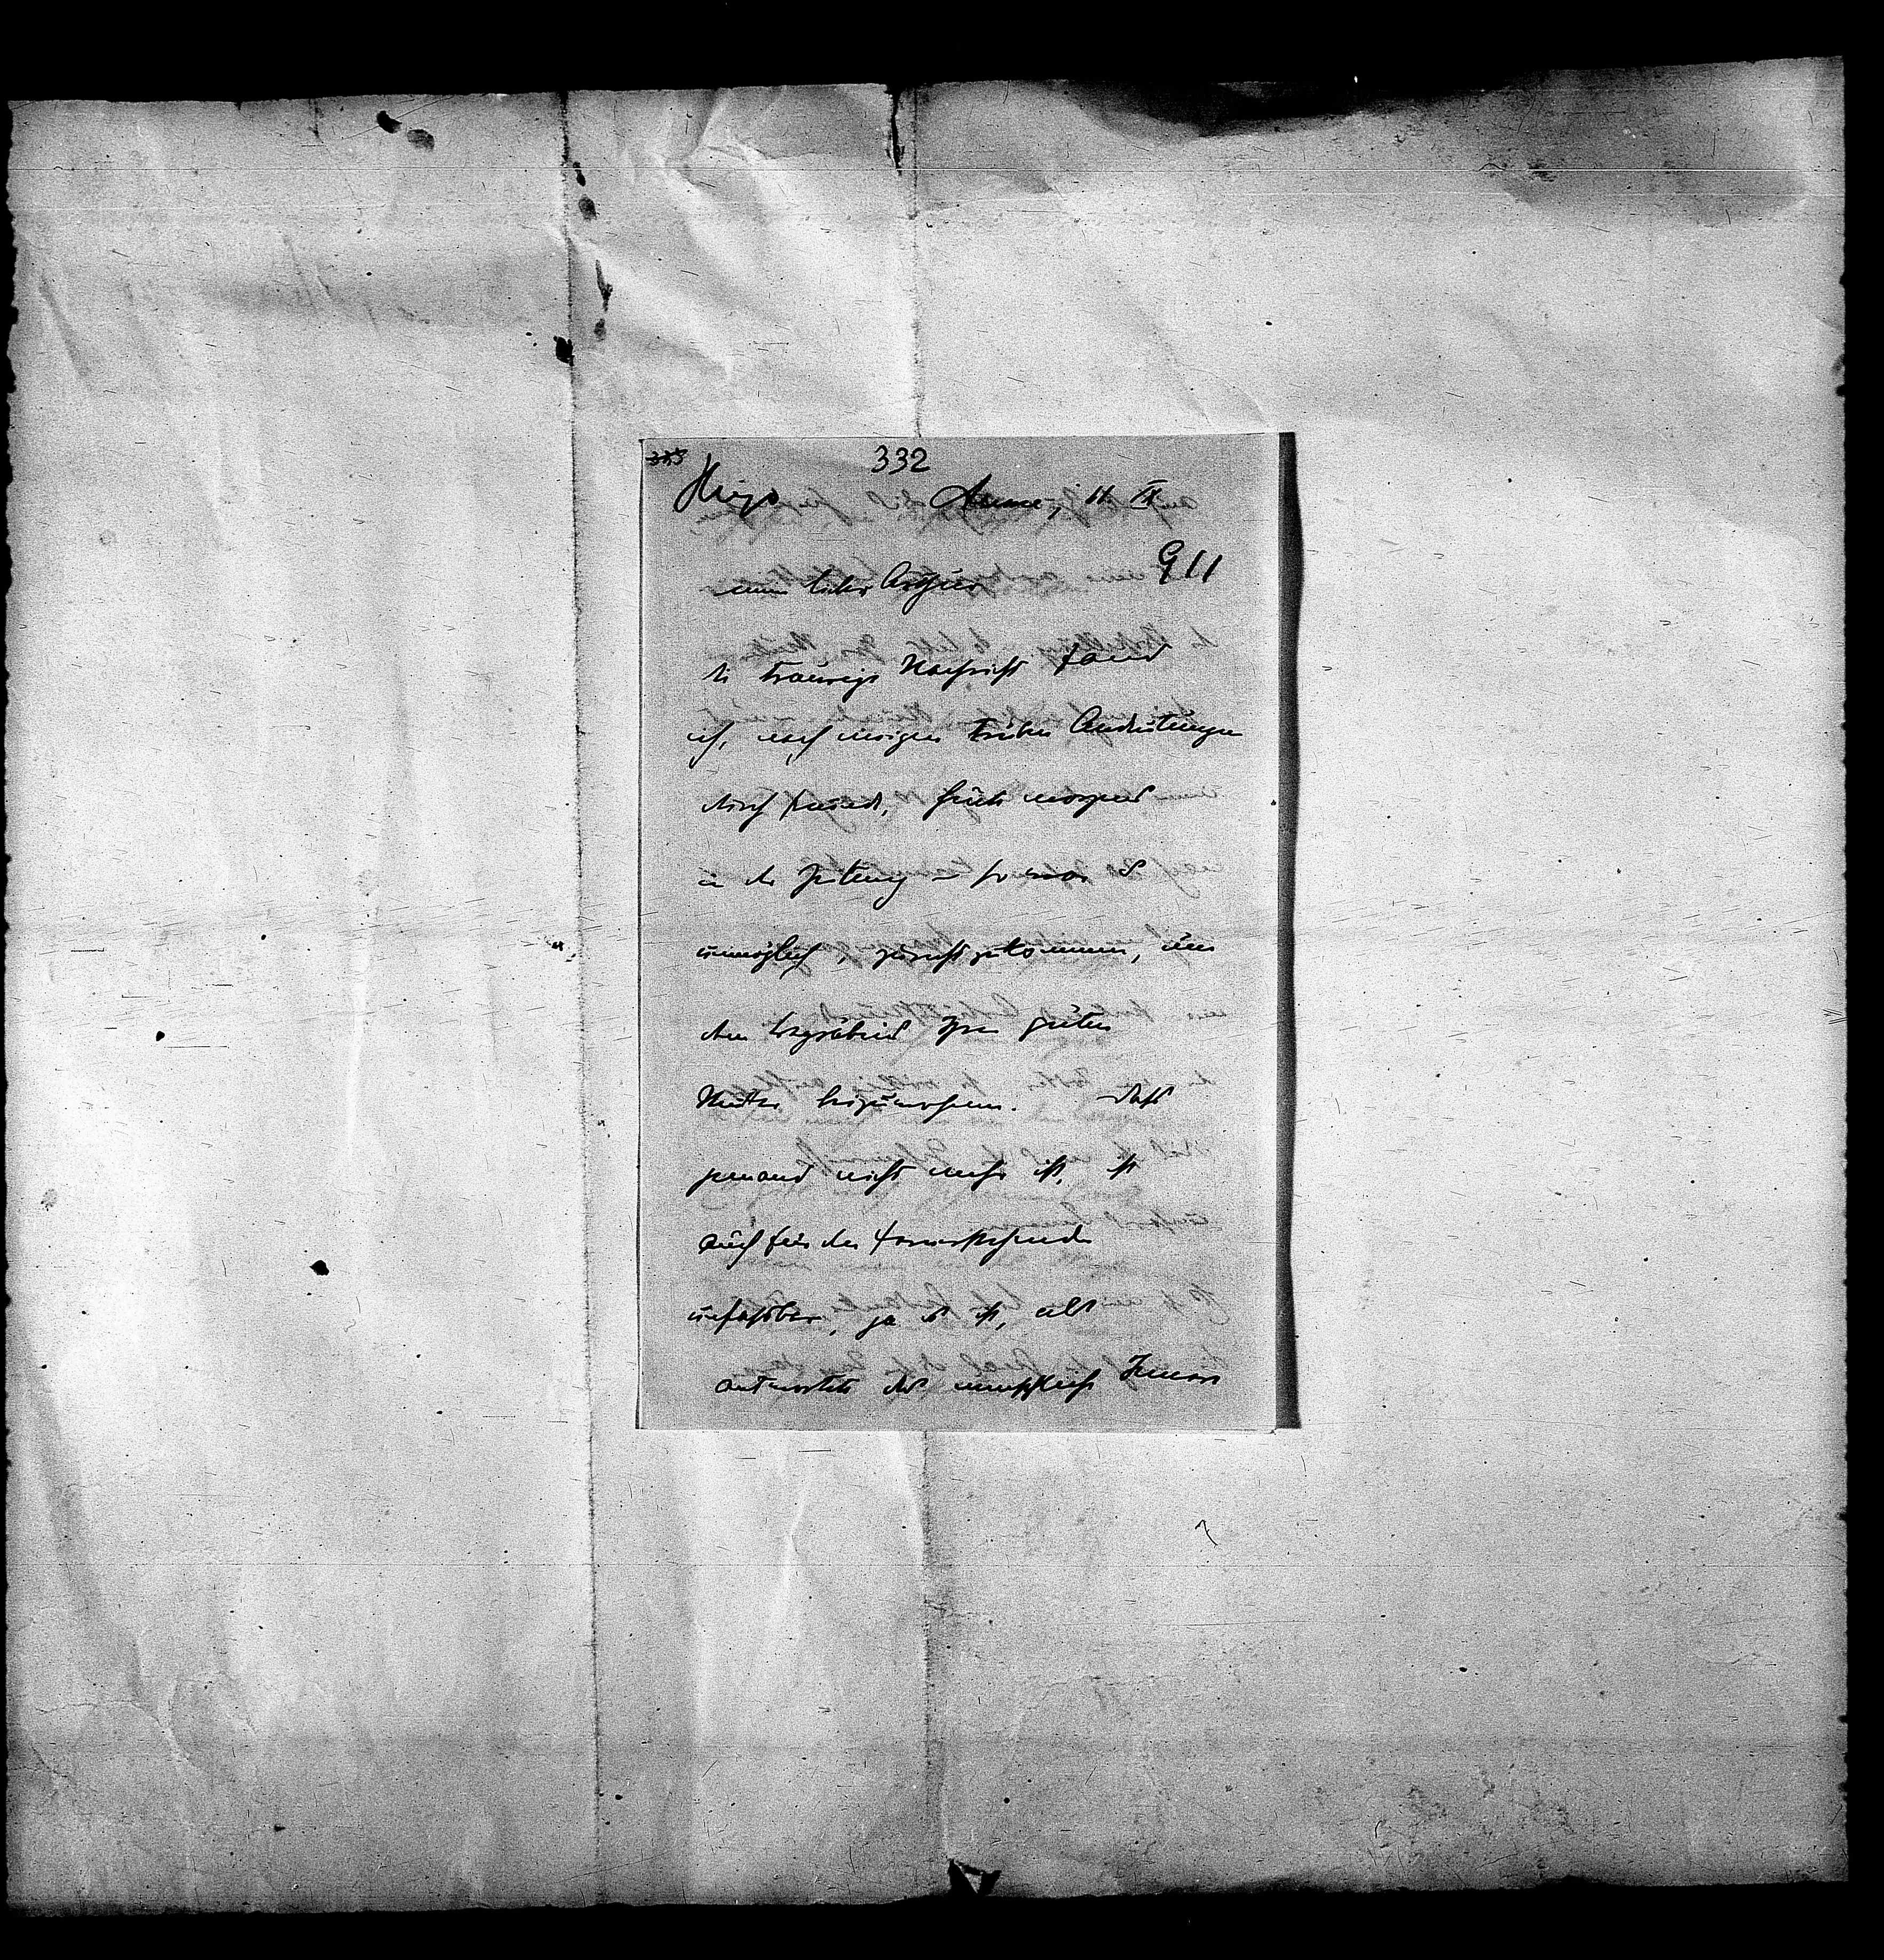 333 332
Hugo Aussee, 11. IX
911
mein lieber Arthur
die traurige Nachricht fand
ich, nach einigen trüben Andeutungen
durch Freunde, früh morgens
in der Zeitung – so war es
unmöglich, zurecht zu kommen, um
dem Begräbnis Ihrer guten
Mutter beizuwohnen. Dass
jemand nicht mehr ist, ist
auch für den Fernerstehenden
unfassbar, ja es ist, als
antwortete das menschliche Innere